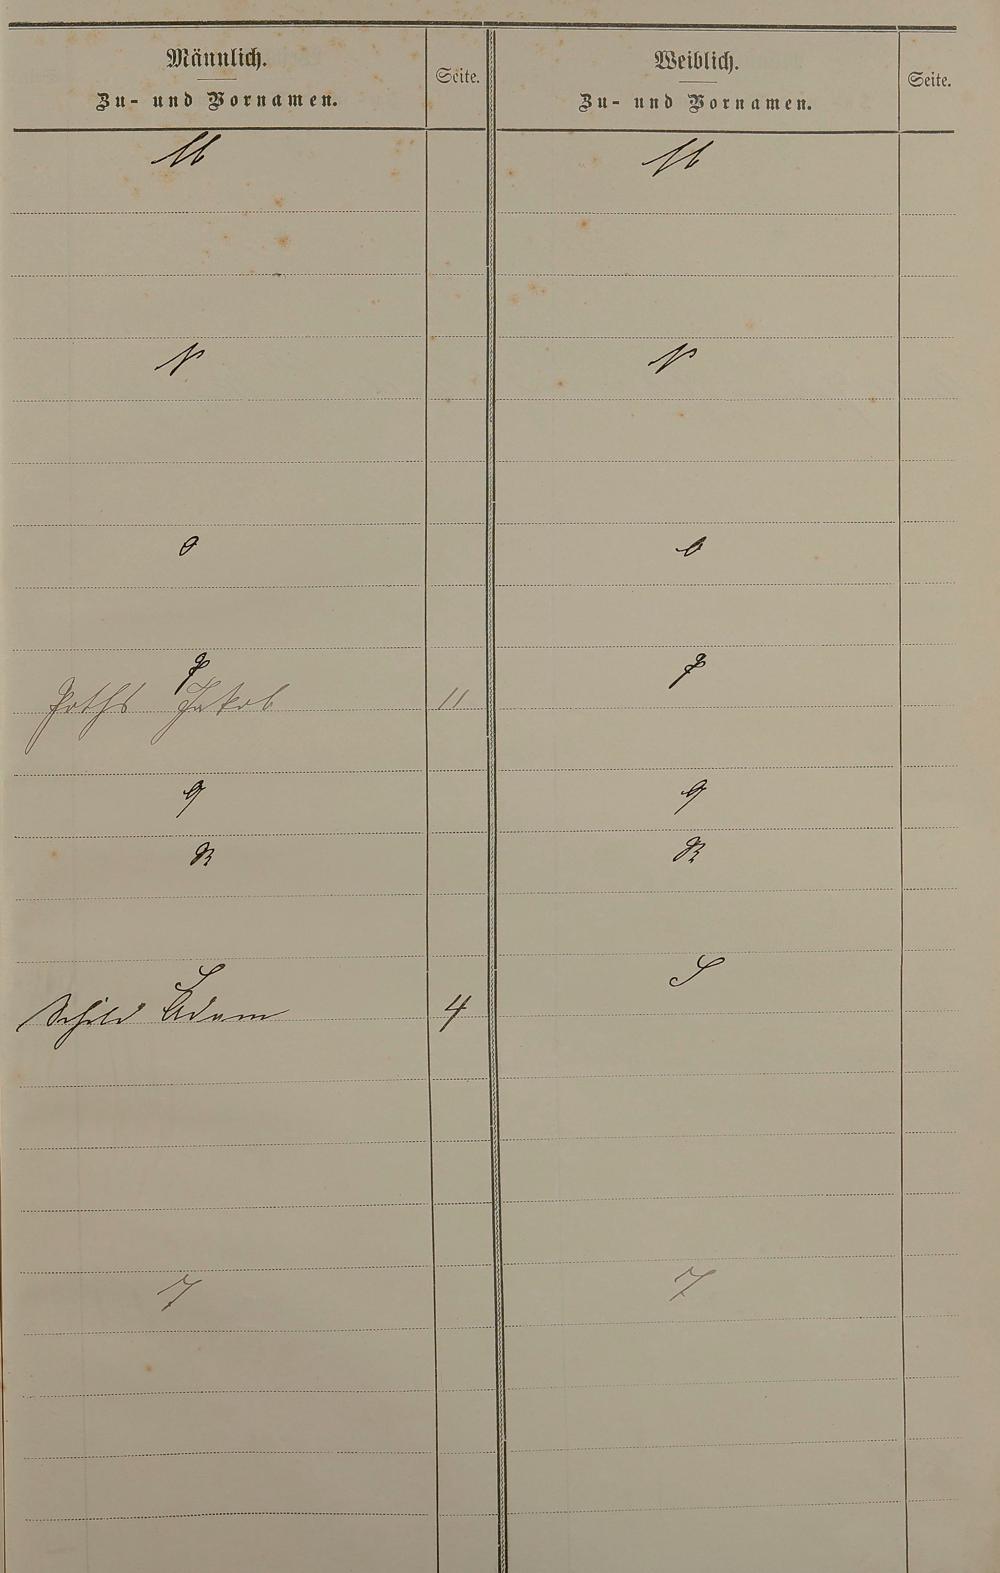 Männlich.
Zu- und Vornamen.
Seite.
M
N
O
P
Poths Jakob 11
Q
R
S
Schild Adam 4
T
Weiblich.
Zu- und Vornamen.
Seite.
M
N
O
P
Q
R
S
T